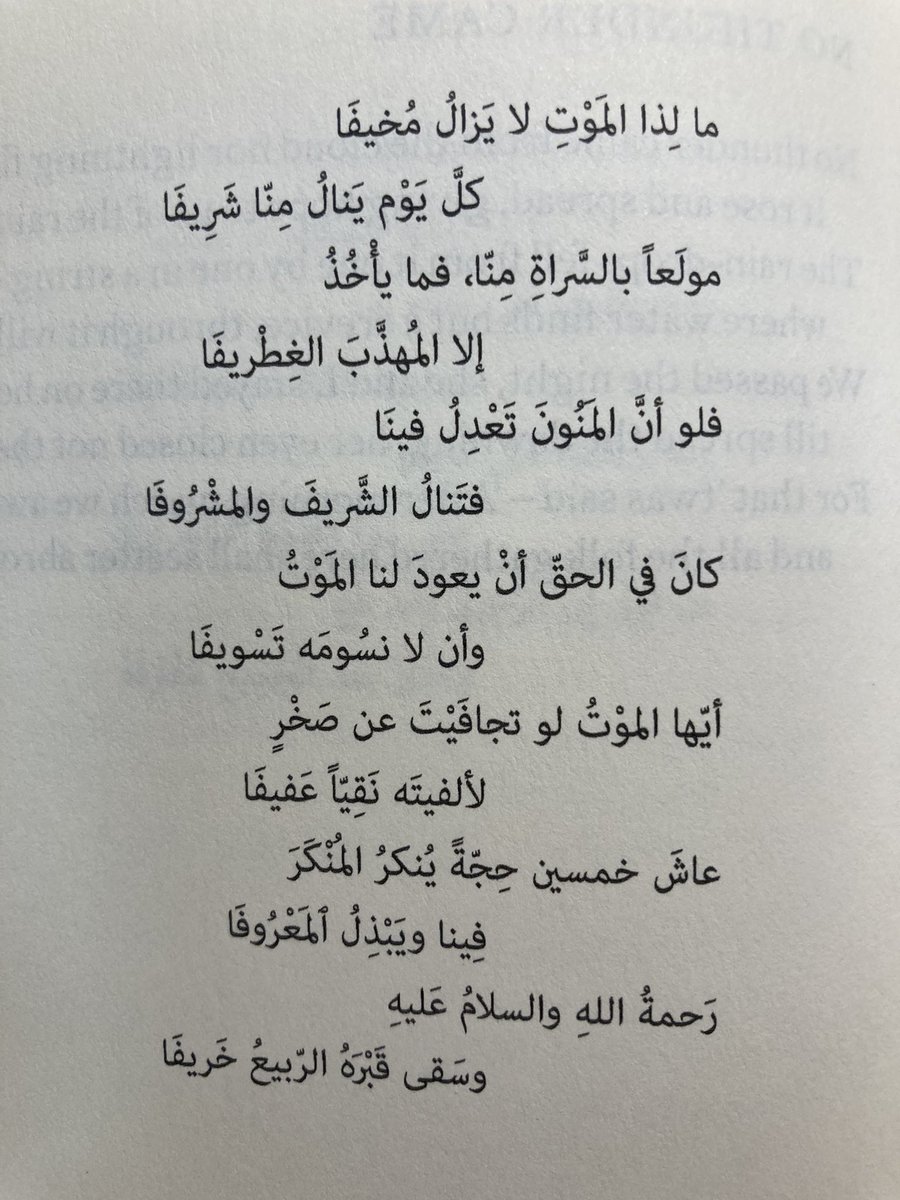 ما لِذا المَوْتِ لا يَزالُ مُخيفَا
كلَّ يَوْم يَنالُ مِنّا شَرِيفَا
مولَعاً بالسَّراةِ مِنّا، فما يأْخُذُ
إلا المُهذَّبَ الغِطْريفَا
فلو أنَّ المَنُونَ تَعْدِلُ فينَا
فتَنالُ الشَّريفَ والمشْرُوفَا
كانَ في الحقّ أنْ يعودَ لنا المَوْتُ
وأن لا نسُومَه تَسْويفَا
أيّها الموْتُ لو تجافَيْتَ عن صَخْرٍ
لألفيتَه نَقِيّاً عَفيفَا
عاشَ خمسين حِجّةً يُنكرُ المُنْكَرَ
فِينا ويَبْذِلُ ٱلمَعْرُوفَا
رَحمةُ اللهِ والسلامُ عَليهِ
وسَقى قَبْرَهُ الرّبيعُ خَريفَا